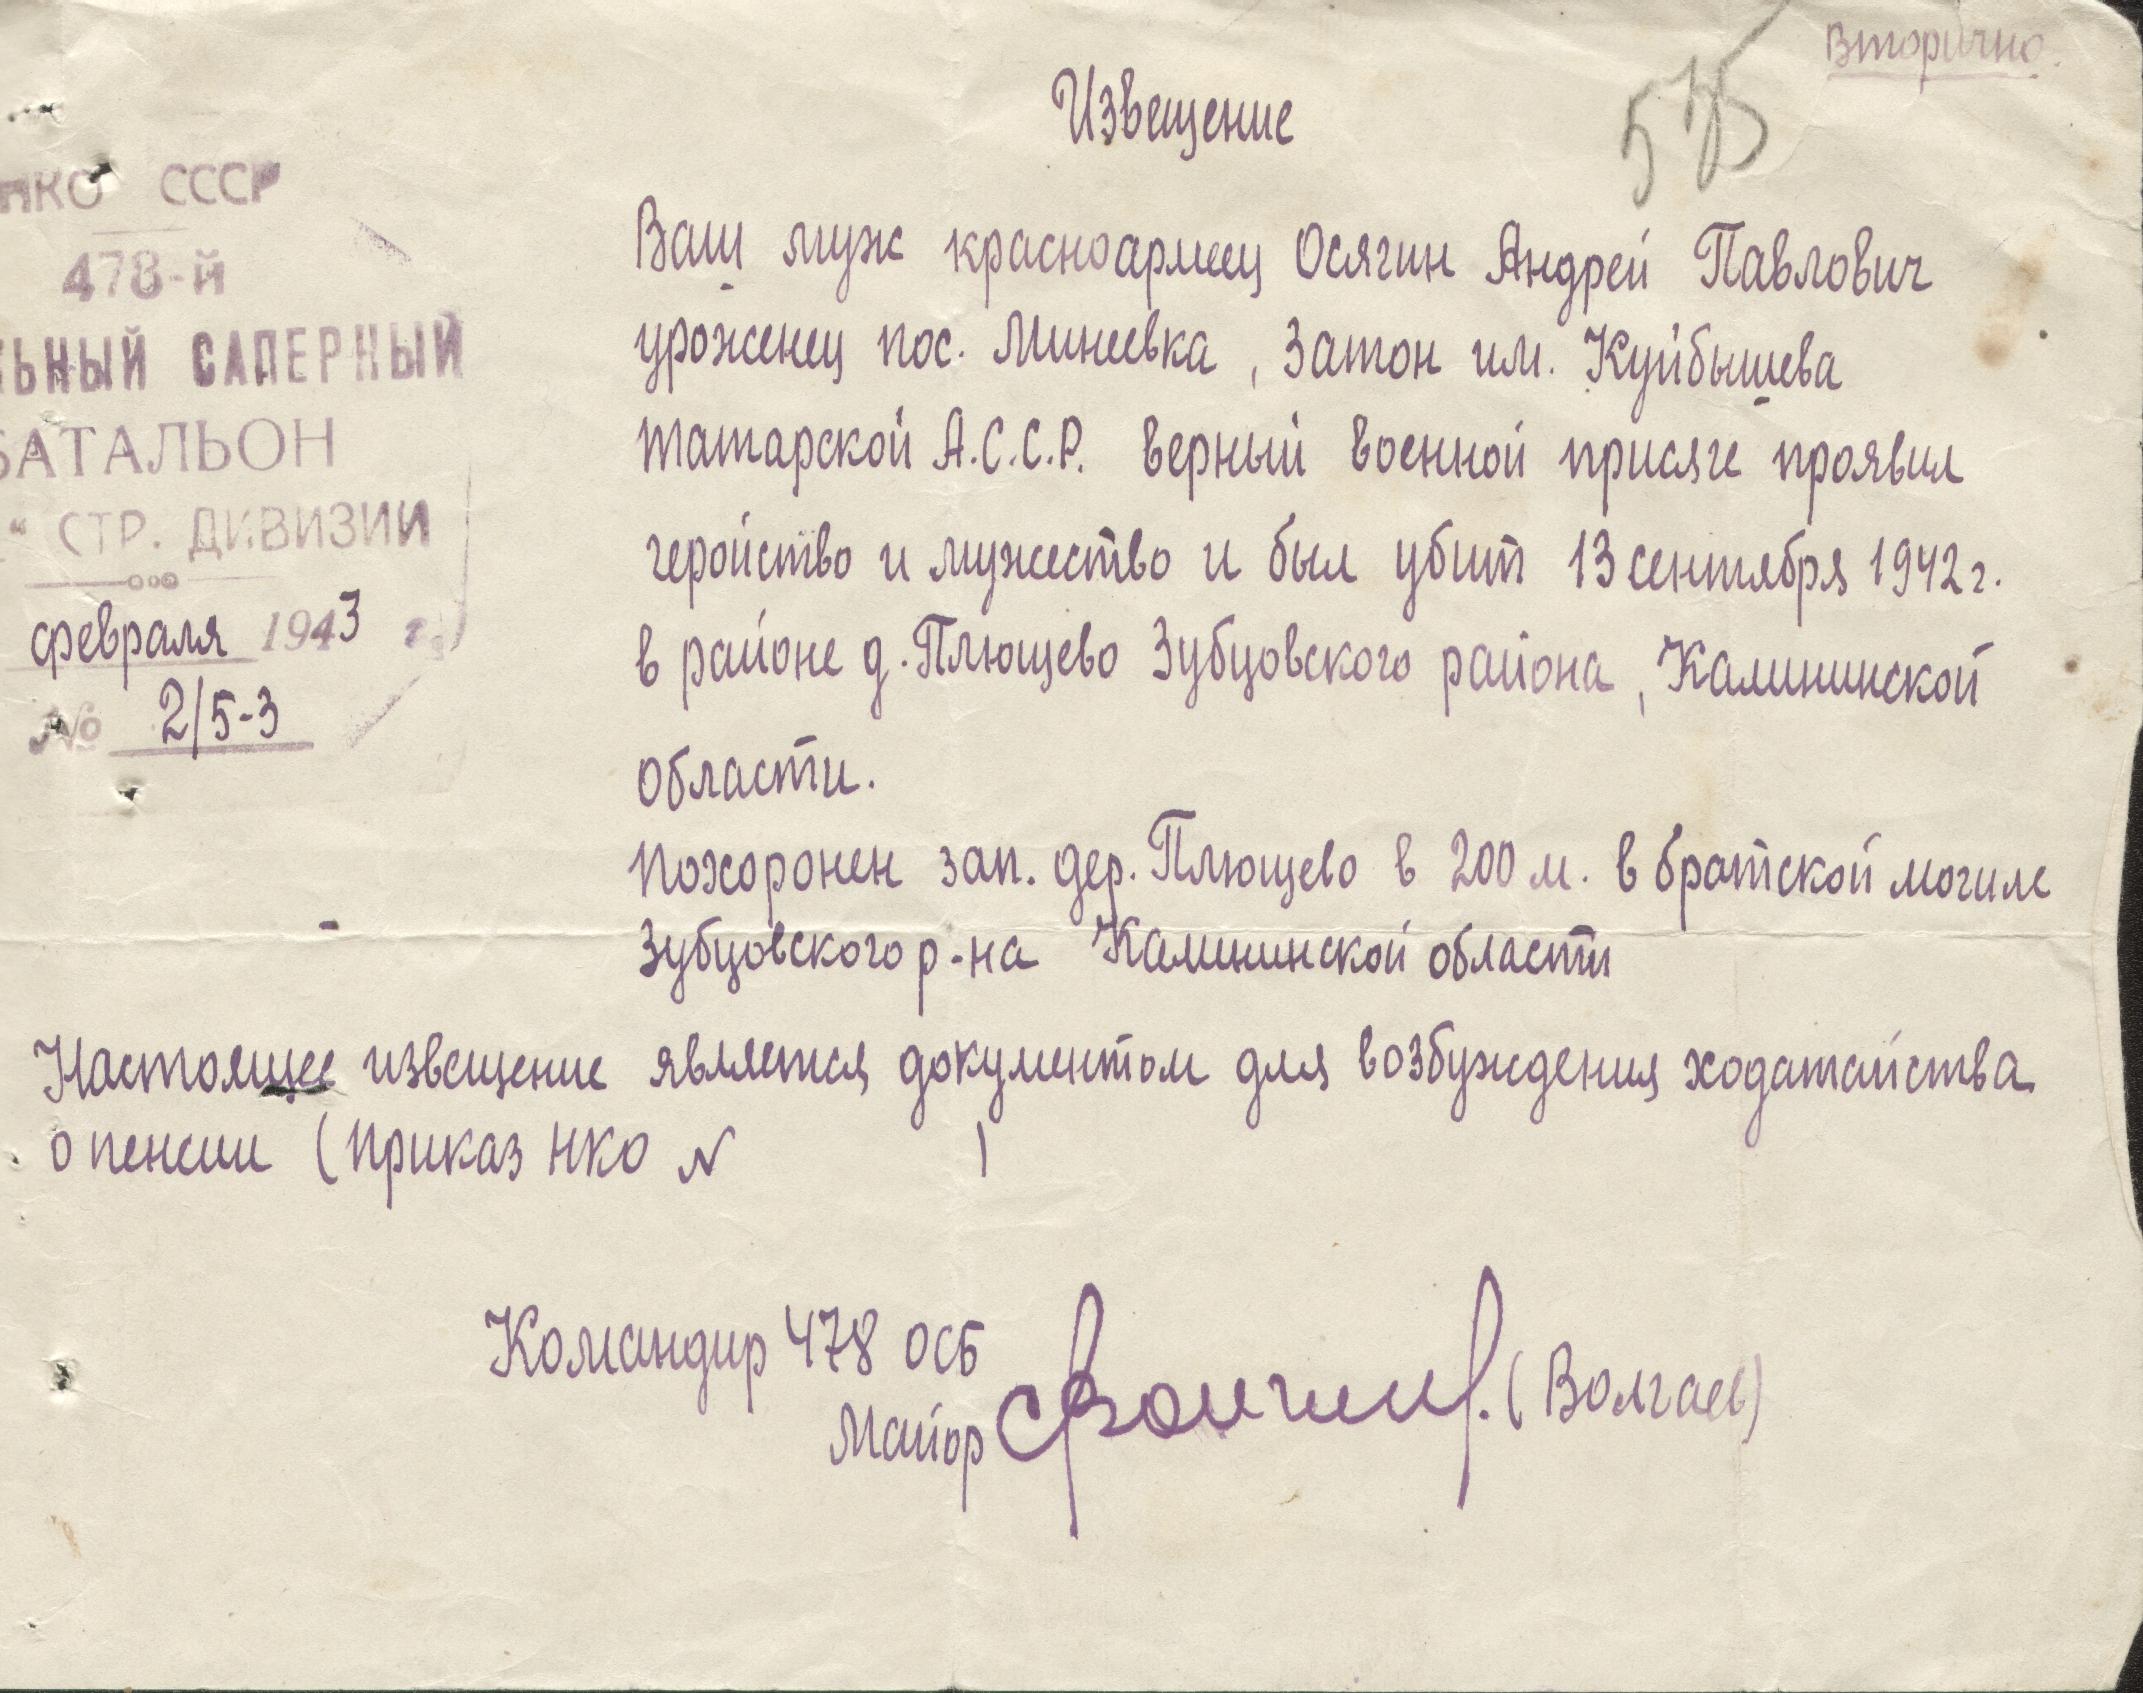 Вторично.
575
Извещение
НКО СССР
478-й
ЬНЫЙ САПЕРНЫЙ
БАТАЛЬОН
" СТР. ДИВИЗИИ
февраля 1943 г.
№ 2/5-3
Ваш муж красноармеец Осягин Андрей Павлович
уроженец пос. Минеевка, Затон им. Куйбышева
Татарской А.С.С.Р. верный военной присяге проявил
геройство и мужество и был убит 13 сентября 1942 г.
в районе д. Плющево Зубцовского района, Калининской
области.
Похоронен зап. дер. Плющево в 200 м. в братской могиле
Зубцовского р-на Калининской области
Настоящее извещение является документом для возбуждения ходатайства
о пенсии (приказ НКО N )
Командир 478 ОСБ
Майор (Волгаев)